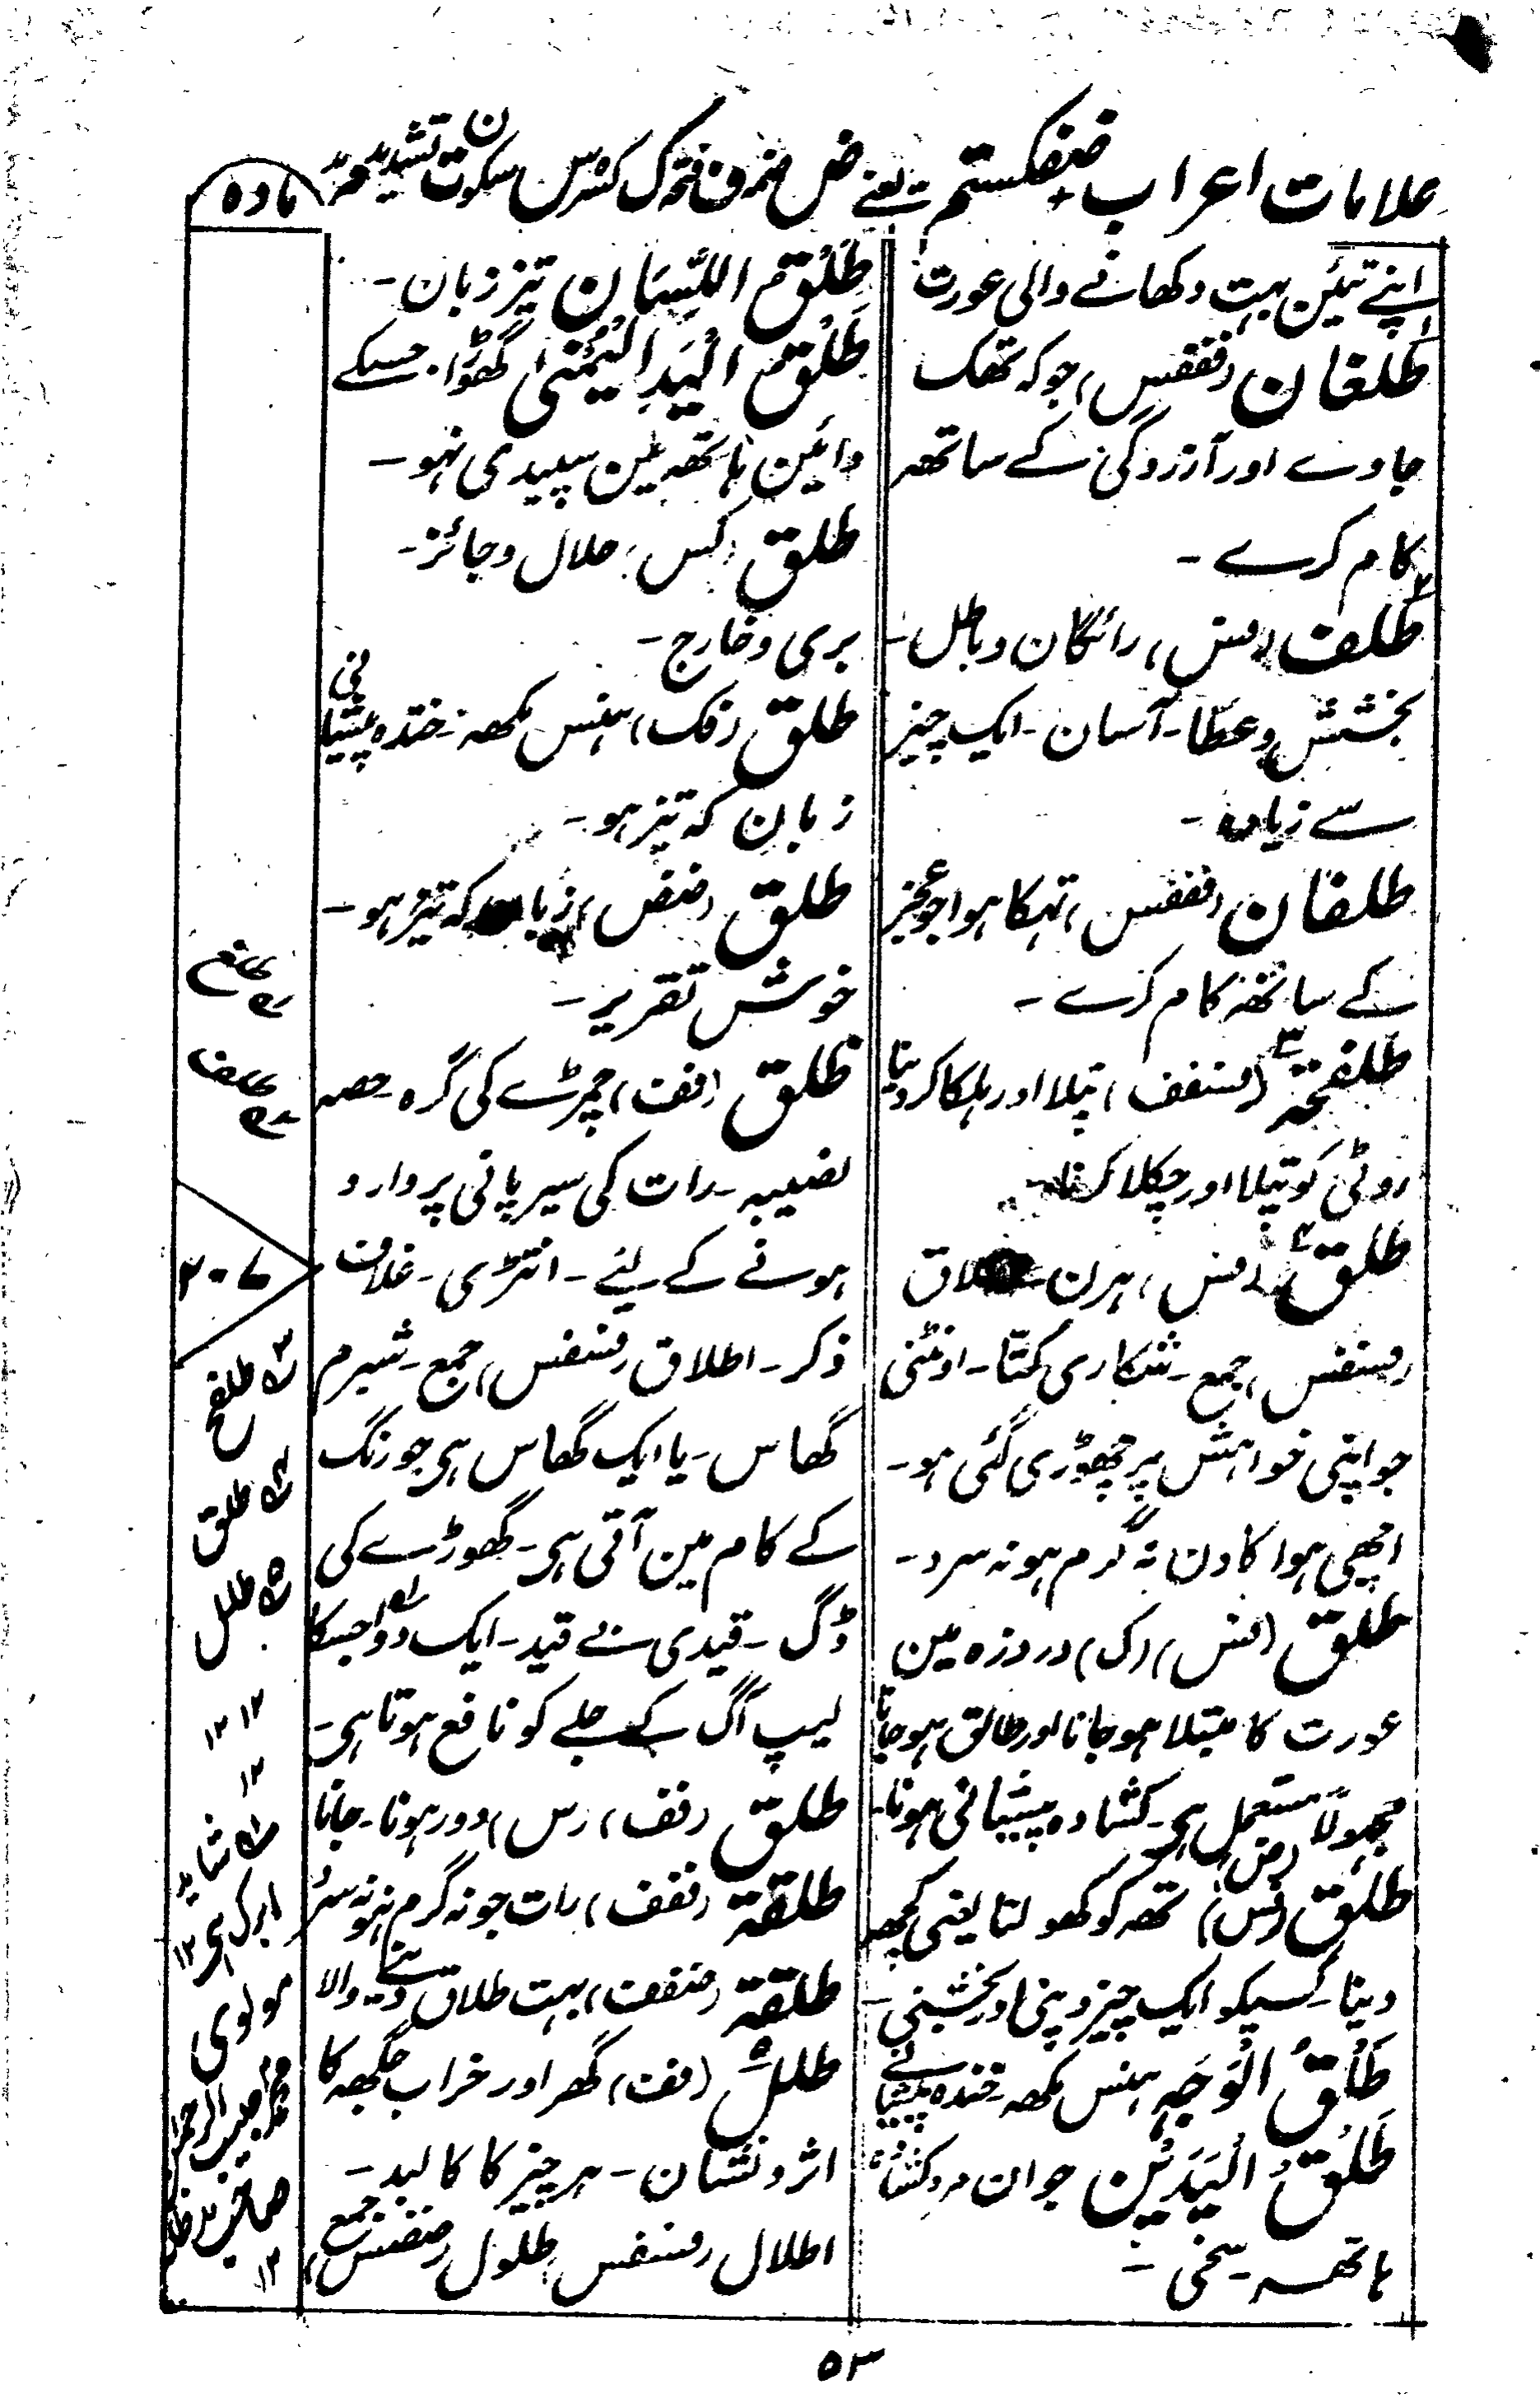 علامات اعراب ضفکستم یعنے ض ضمہ ف فتحہ ک کسرہ س سکون ت تشدید م مد
مادہ
اپنے تئین بہت دکھانے والی عورت
طلغان (ففقس) جو کہ تھک
جاوے اور آزردگی کے ساتھہ
کام کرے ۔
طلف (فس) رائگان و باطل ۔
بخشش و عطا ۔ آسان ۔ ایک چیز
سے زیادہ ۔
طلفان (ففقس) تہکا ہوا جو عجز
کے ساتھہ کام کرے ۔
طلفحۃ (فسفف) پتلا اور ہلکا کر دینا
روٹی کو پتلا اور چکلا کرنا ۔
طلق (فس) ہرن ۔ اطلاق
(فسفس) جمع ۔ شکاری کتّا ۔ اونٹنی
جو اپنی خواہش پر چھوڑی گئی ہو ۔
اچھی ہوا کا دن نہ گرم ہو نہ سرد ۔
طلق (فس) (ک) درد زہ مین
عورت کا مبتلا ہو جانا اور طالق ہو جانا
مجہولاً مستعمل ہی ۔ کشادہ پیشانی ہونا ۔
طلق (فس) (ض) تھہ کو کھولنا یعنی کچھہ
دینا ۔ کسیکو ایک چیز دینی اور بخشنی ۔
طَلْقُ الْوَجْہِ ہنس مکھہ خندہ پیشانی
طَلْقُ الْیَدَیْنِ جوان مرد کشادہ
ہاتھہ ۔ سخی ۔
طَلْقُ اللِّسَانِ تیز زبان ۔
طَلْقُ الْیَدِ الْیُمْنٰی گھوڑا جسکے
دائین ہاتھہ مین سپیدی نہو ۔
طلق (کس) حلال و جائز ۔
بری و خارج ۔
طلق (فک) ہنس مکھہ ۔ خندہ پیشانی
زبان کہ تیز ہو ۔
طلق (ضض) زبان کہ تیز ہو ۔
خوش تقریر ۔
طلق (فف) چمڑے کی گرہ ۔ حصہ
نصیبہ ۔ رات کی سیر پانی پر وارد
ہونے کے لیے ۔ انتڑی ۔ غلاف
ذکر ۔ اطلاق (فسفس) جمع ۔ شبرم
گھاس ۔ یا ایک گھاس ہی جو رنگ
کے کام مین آتی ہی ۔ گھوڑے کی
ڈگ ۔ قیدی بے قید ۔ ایک دوا جسکا
لیپ آگ کے جلے کو نافع ہوتا ہی ۔
طلق (فف) (س) دور ہونا ۔ جانا
طلقۃ (ففف) رات جو نہ گرم ہو نہ سرد
طلقۃ (ضففت) بہت طلاق دینے والا
طلل (فف) گھر اور خراب جگھہ کا
اثر و نشان ۔ ہر چیز کا کالبد ۔
اطلال (فسفس) طلول (ضضس) جمع
طلغ
طلف
۲۰۷
۳ طلفح
۴ طلق
۵ طلل
۱۲ ۱۲
۱۲
شاید
ابرک ہی ۱۲
مولوی
صاحب
۱۲
۵۳